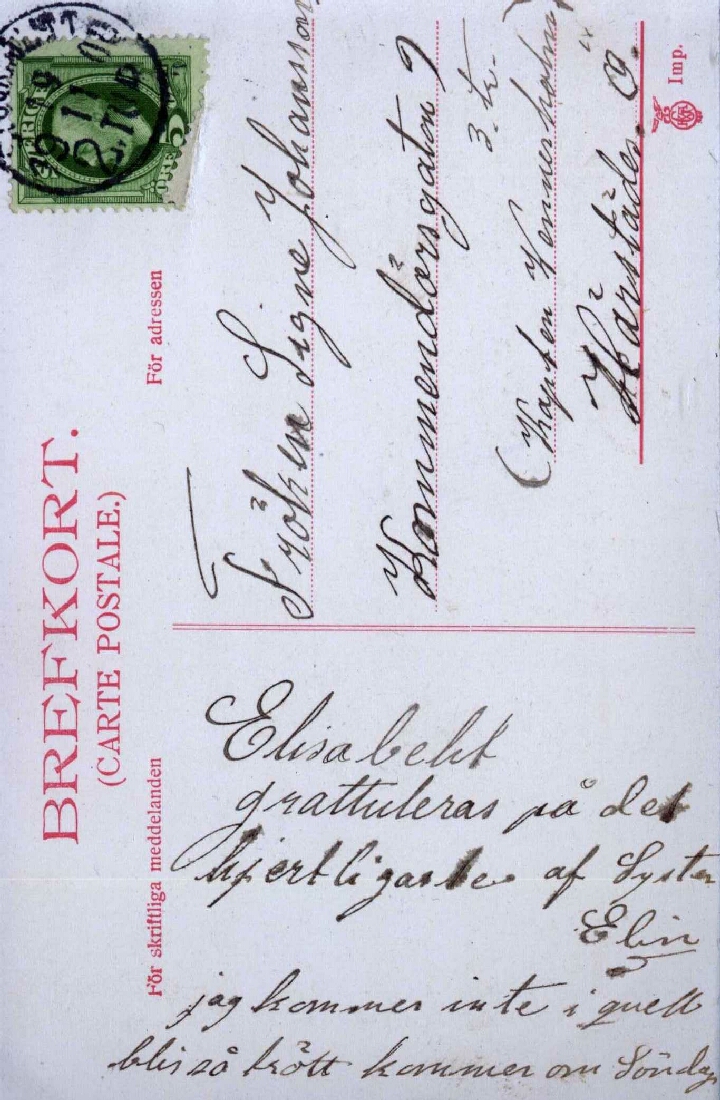 BREFKORT.
(CARTE POSTALE.)
För adressen
Fröken Signe Johansson
Kommendörsgatan 9
3. tr.
(Kapten
Imp.
För skriftliga meddelanden
Elisabeht
grattuleras på det
hjertligaste af Syster
Elin
jag kommer inte i quell
blir så trött kommer om Söndag